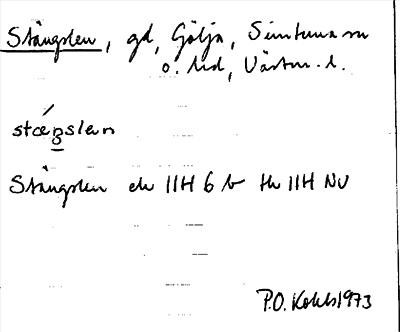 Stängslen, gd, Gölja, Simtuna sn
o. hd, Västm. l.
stæŋslen
Stängslen ek 11H 6 b tk 11H NV
P.O. Kohls 1973